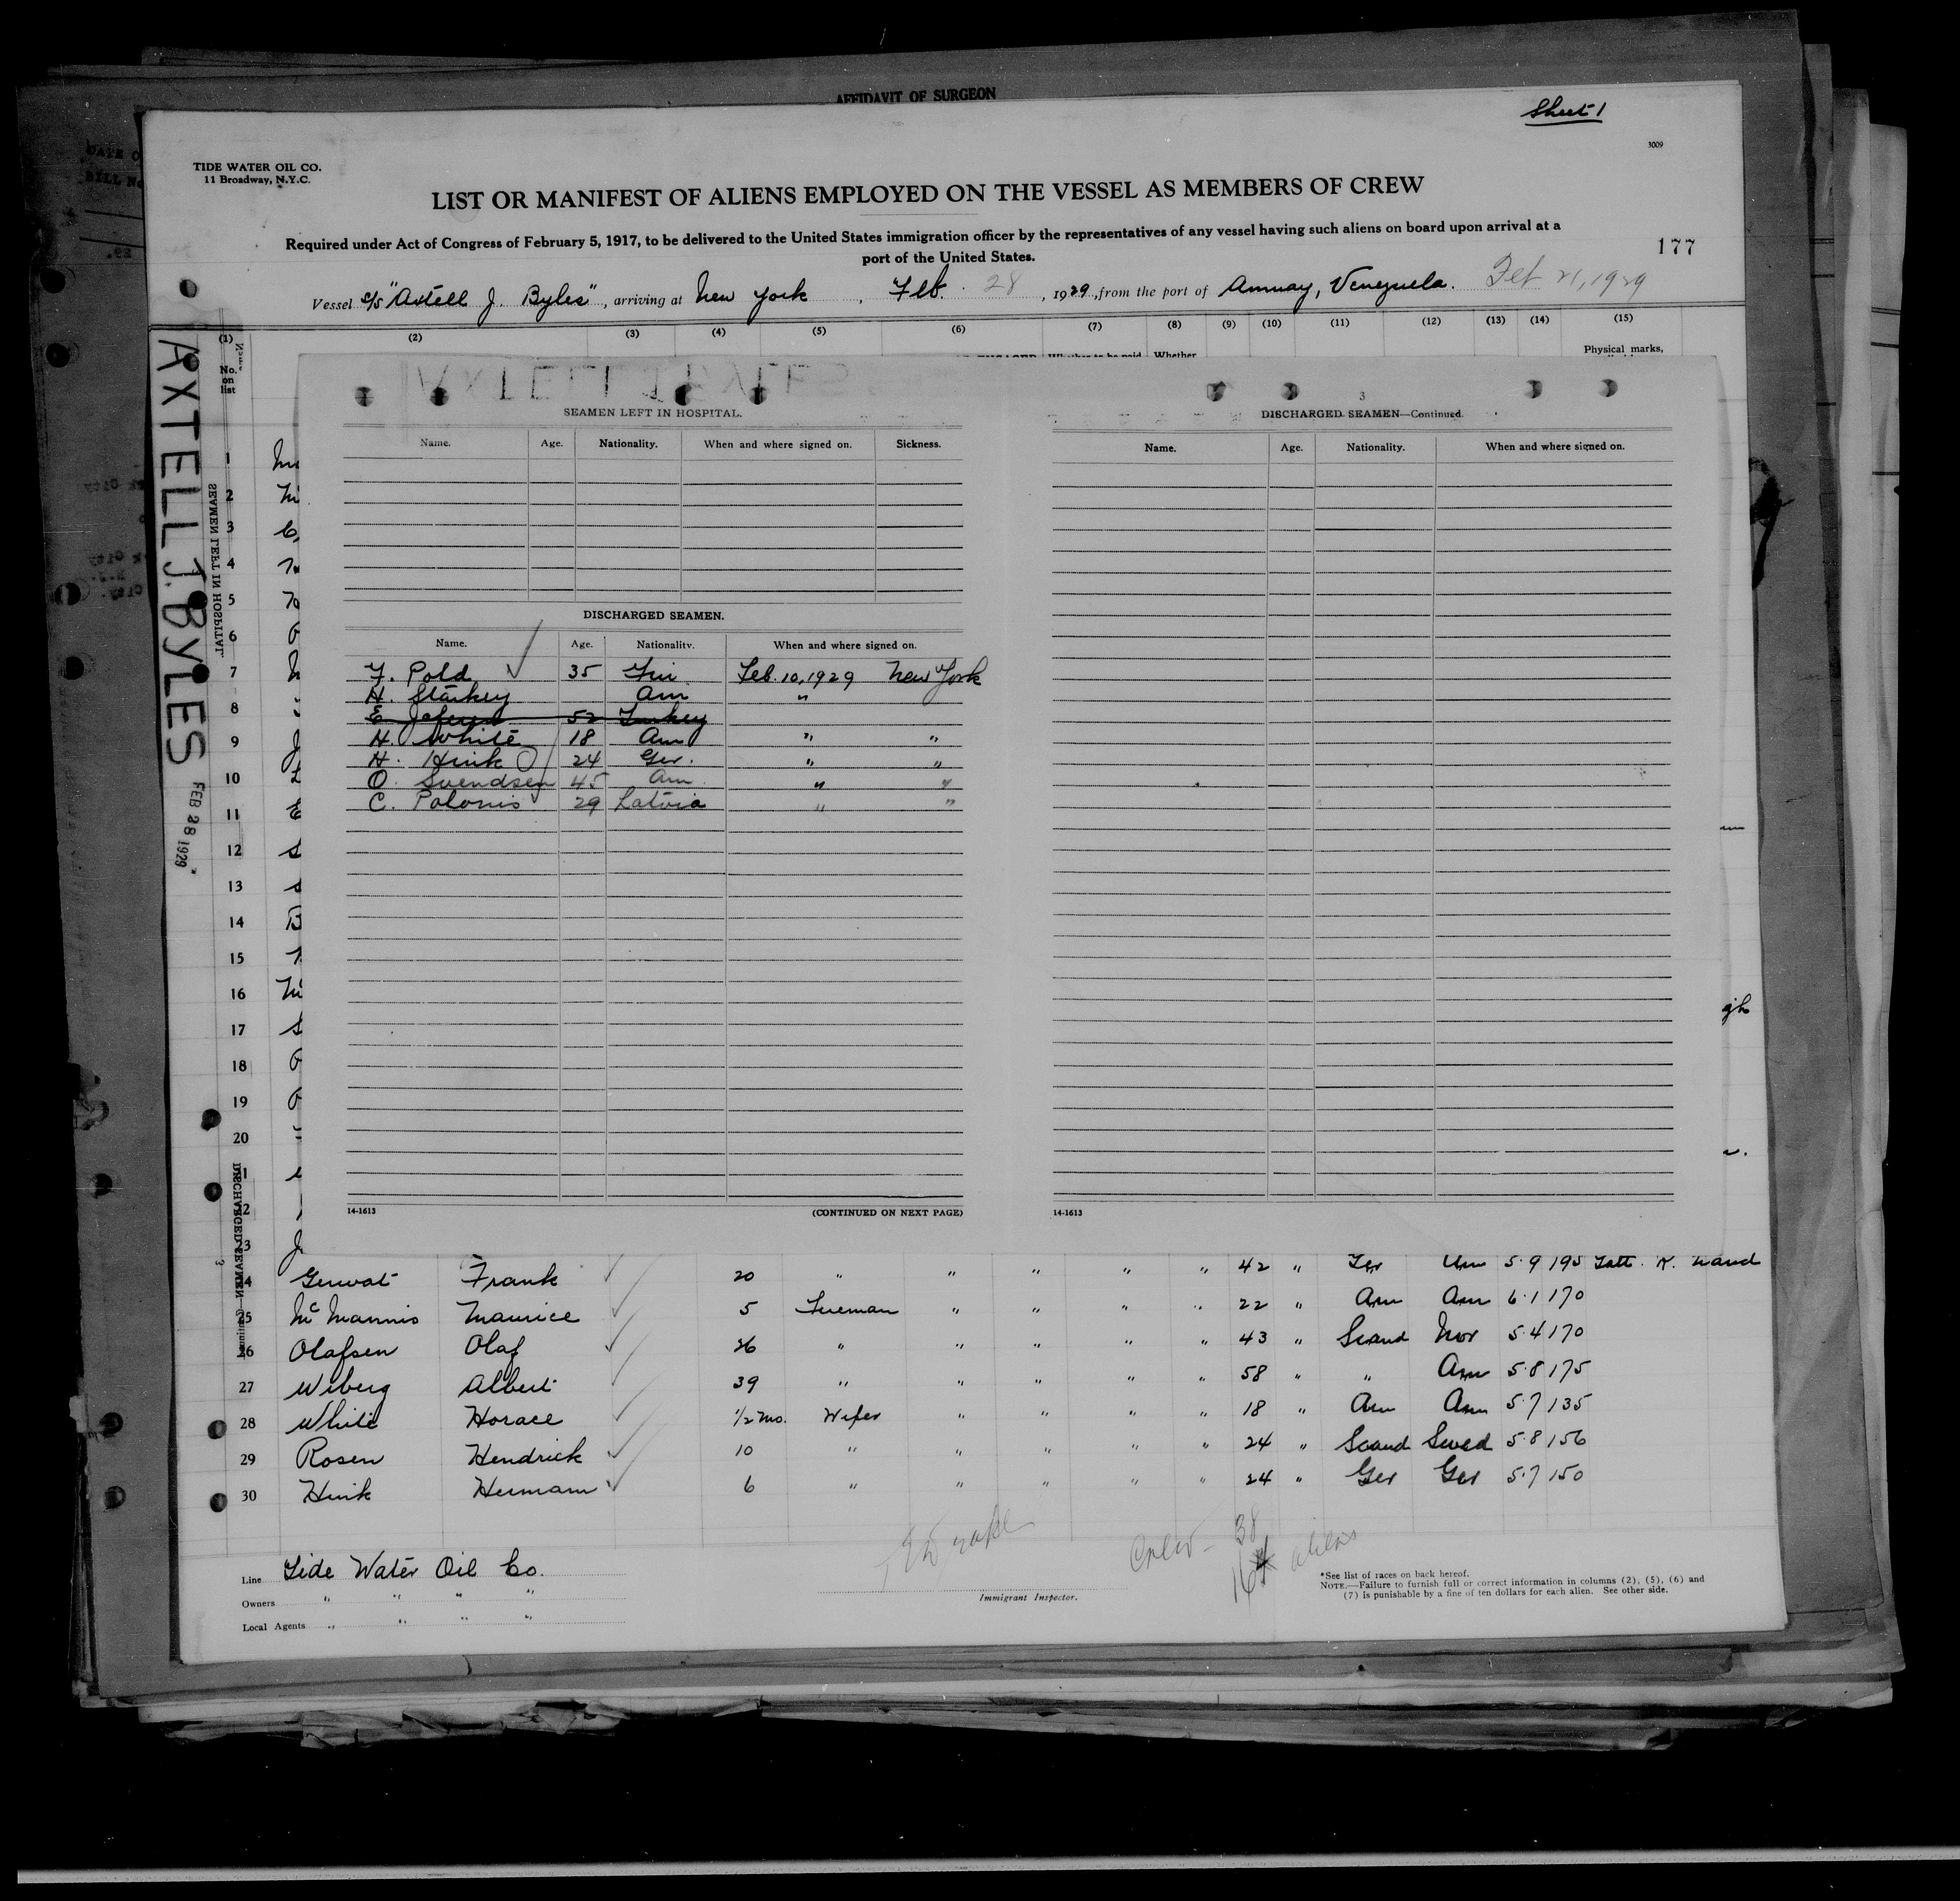 AFFIDAVIT OF SURGEON
Sheet 1
3009
TIDE WATER OIL CO.
11 Broadway, N.Y.C.
LIST OR MANIFEST OF ALIENS EMPLOYED ON THE VESSEL AS MEMBERS OF CREW
Required under Act of Congress of February 5, 1917, to be delivered to the United States immigration officer by the representatives of any vessel having such aliens on board upon arrival at a
port of the United States.
177
Vessel S/S "Axtell J. Byles", arriving at New York, Feb. 28, 1929, from the port of Amuay, Venezuela. Feb 21, 1929
(1) (2) (3) (4) (5) (6) (7) (8) (9) (10) (11) (12) (13) (14) (15)
No. on list
Whether
Physical marks,
AXTELL J. BYLES FEB 28 1929
SEAMEN LEFT IN HOSPITAL
SEAMEN LEFT IN HOSPITAL.
Name. Age. Nationality. When and where signed on. Sickness.
DISCHARGED SEAMEN.
Name. Age. Nationality. When and where signed on.
F. Pold 35 Fin Feb. 10, 1929 New York
H. Starkey Am "
52 Turkey
H. White 18 Am " "
H. Hink 24 Ger. " "
O. Svendsen 45 Am " "
C. Polonis 29 Latvia " "
14-1613 (CONTINUED ON NEXT PAGE)
3
DISCHARGED SEAMEN—Continued.
Name. Age. Nationality. When and where signed on.
14-1613
1
2
3
4
5
6
7
8
9
10
11
12
13
14
15
16
17
18
19
20
23
Gerwat Frank 20 " " " " " 42 " Ger Am 5·9 195 Tatt. R. Hand
25 McMannis Maurice 5 Fireman " " " " 22 " Am Am 6·1 170
Olafsen Olaf 26 " " " " " 43 " Scand Nor 5·4 170
27 Wiberg Albert 39 " " " " " 58 " " Am 5·8 175
28 White Horace 1/2 mo. Wiper " " " " 18 " Am Am 5·7 135
29 Rosen Hendrick 10 " " " " " 24 " Scand Swed 5·8 156
30 Hink Hermann 6 " " " " " 24 " Ger Ger 5·7 150
Crew - 38
16 aliens
Line Tide Water Oil Co.
Owners " " " "
Local Agents " " " "
Immigrant Inspector.
*See list of races on back hereof.
NOTE.—Failure to furnish full or correct information in columns (2), (5), (6) and
(7) is punishable by a fine of ten dollars for each alien. See other side.